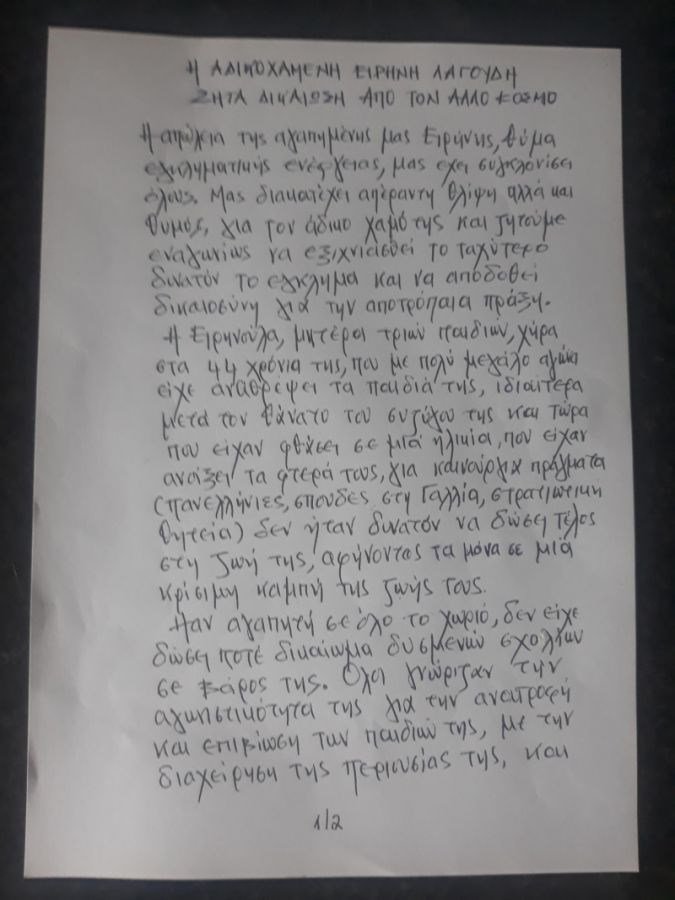 Η ΑΔΙΚΟΧΑΜΕΝΗ ΕΙΡΗΝΗ ΛΑΓΟΥΔΗ
ΖΗΤΑ ΔΙΚΑΙΩΣΗ ΑΠΟ ΤΟΝ ΑΛΛΟ ΚΟΣΜΟ
Η απώλεια της αγαπημένης μας Ειρήνης, θύμα
εγκληματικής ενέργειας, μας έχει συγκλονίσει
όλους. Μας διακατέχει απέραντη θλίψη αλλά και
θυμός, για τον άδικο χαμό της και ζητούμε
εναγωνίως να εξιχνιασθεί το ταχύτερο
δυνατόν το έγκλημα και να αποδοθεί
δικαιοσύνη για την αποτρόπαια πράξη.
Η Ειρηνούλα, μητέρα τριών παιδιών, χήρα
στα 44 χρόνια της, που με πολύ μεγάλο αγώνα
είχε αναθρέψει τα παιδιά της, ιδιαίτερα
μετά τον θάνατο του συζύγου της και τώρα
που είχαν φθάσει σε μία ηλικία, που είχαν
ανοίξει τα φτερά τους, για καινούργια πράγματα
(πανελλήνιες, σπουδές στη Γαλλία, στρατιωτική
θητεία) δεν ήταν δυνατόν να δώσει τέλος
στη ζωή της, αφήνοντας τα μόνα σε μία
κρίσιμη καμπή της ζωής τους.
Ήταν αγαπητή σε όλο το χωριό, δεν είχε
δώσει ποτέ δικαίωμα δυσμενών σχολίων
σε βάρος της. Όλοι γνώριζαν την
αγωνιστικότητα της για την ανατροφή
και επιβίωση των παιδιών της, με την
διαχείρηση της περιουσίας της, και
1/2